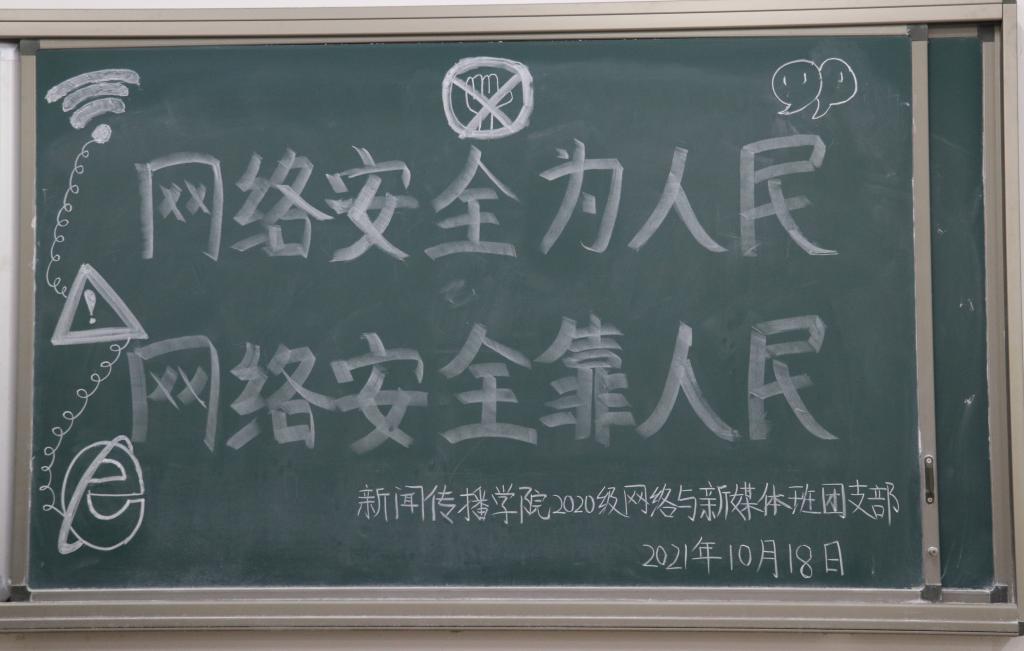 网络安全为人民
网络安全靠人民
新闻传播学院2020级网络与新媒体班团支部
2021年10月18日